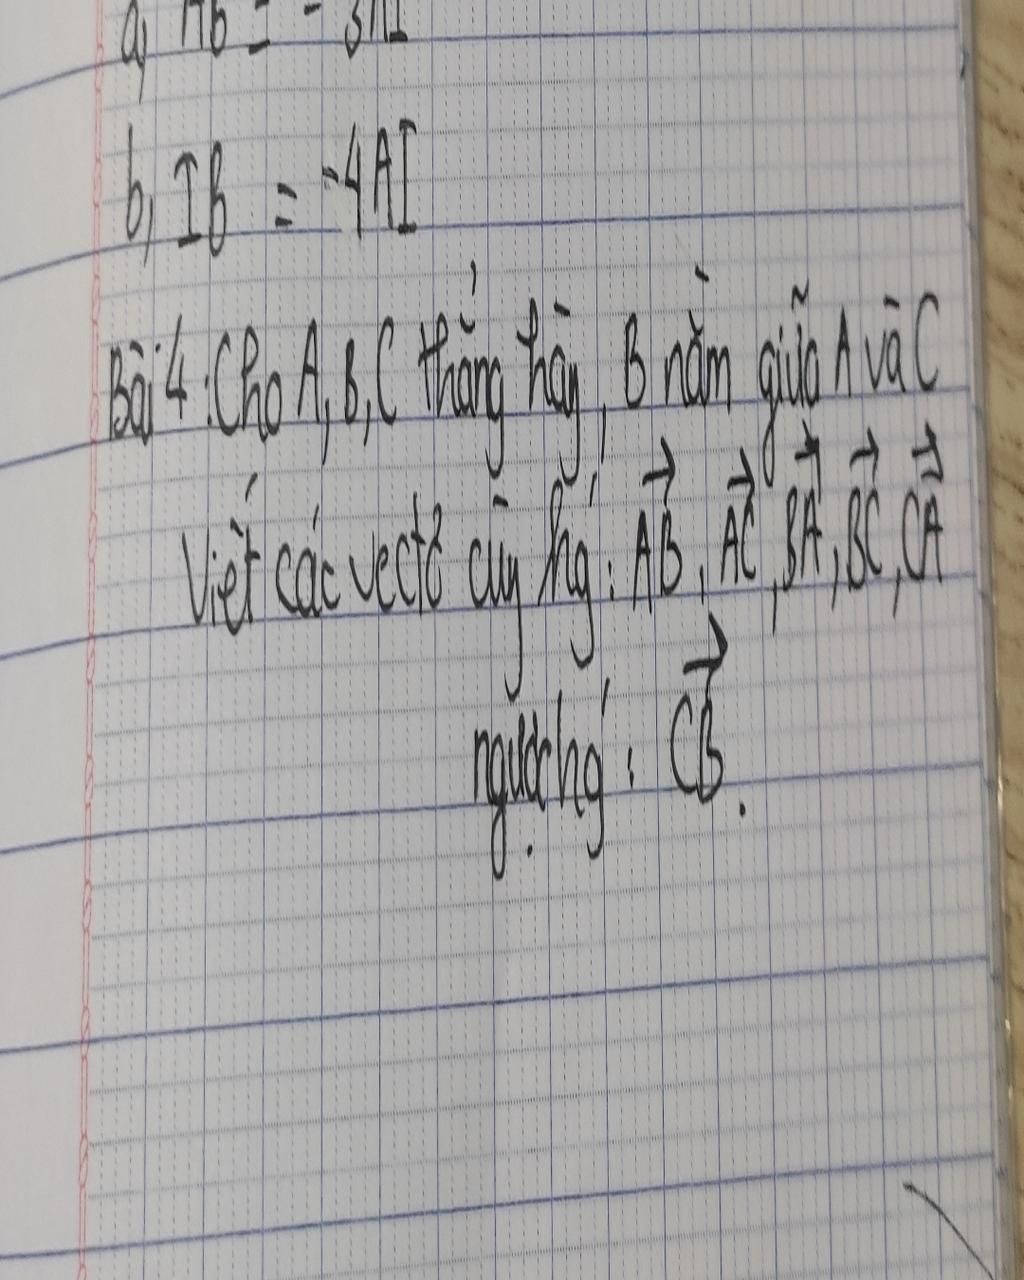 a, AB = - 3AI
b, IB = -4AI
Bài 4: Cho A, B, C thẳng hàg, B nằm giữa A và C
Viết các vectơ cùg hg: AB, AC, BA, BC, CA
ngược hg: CB.